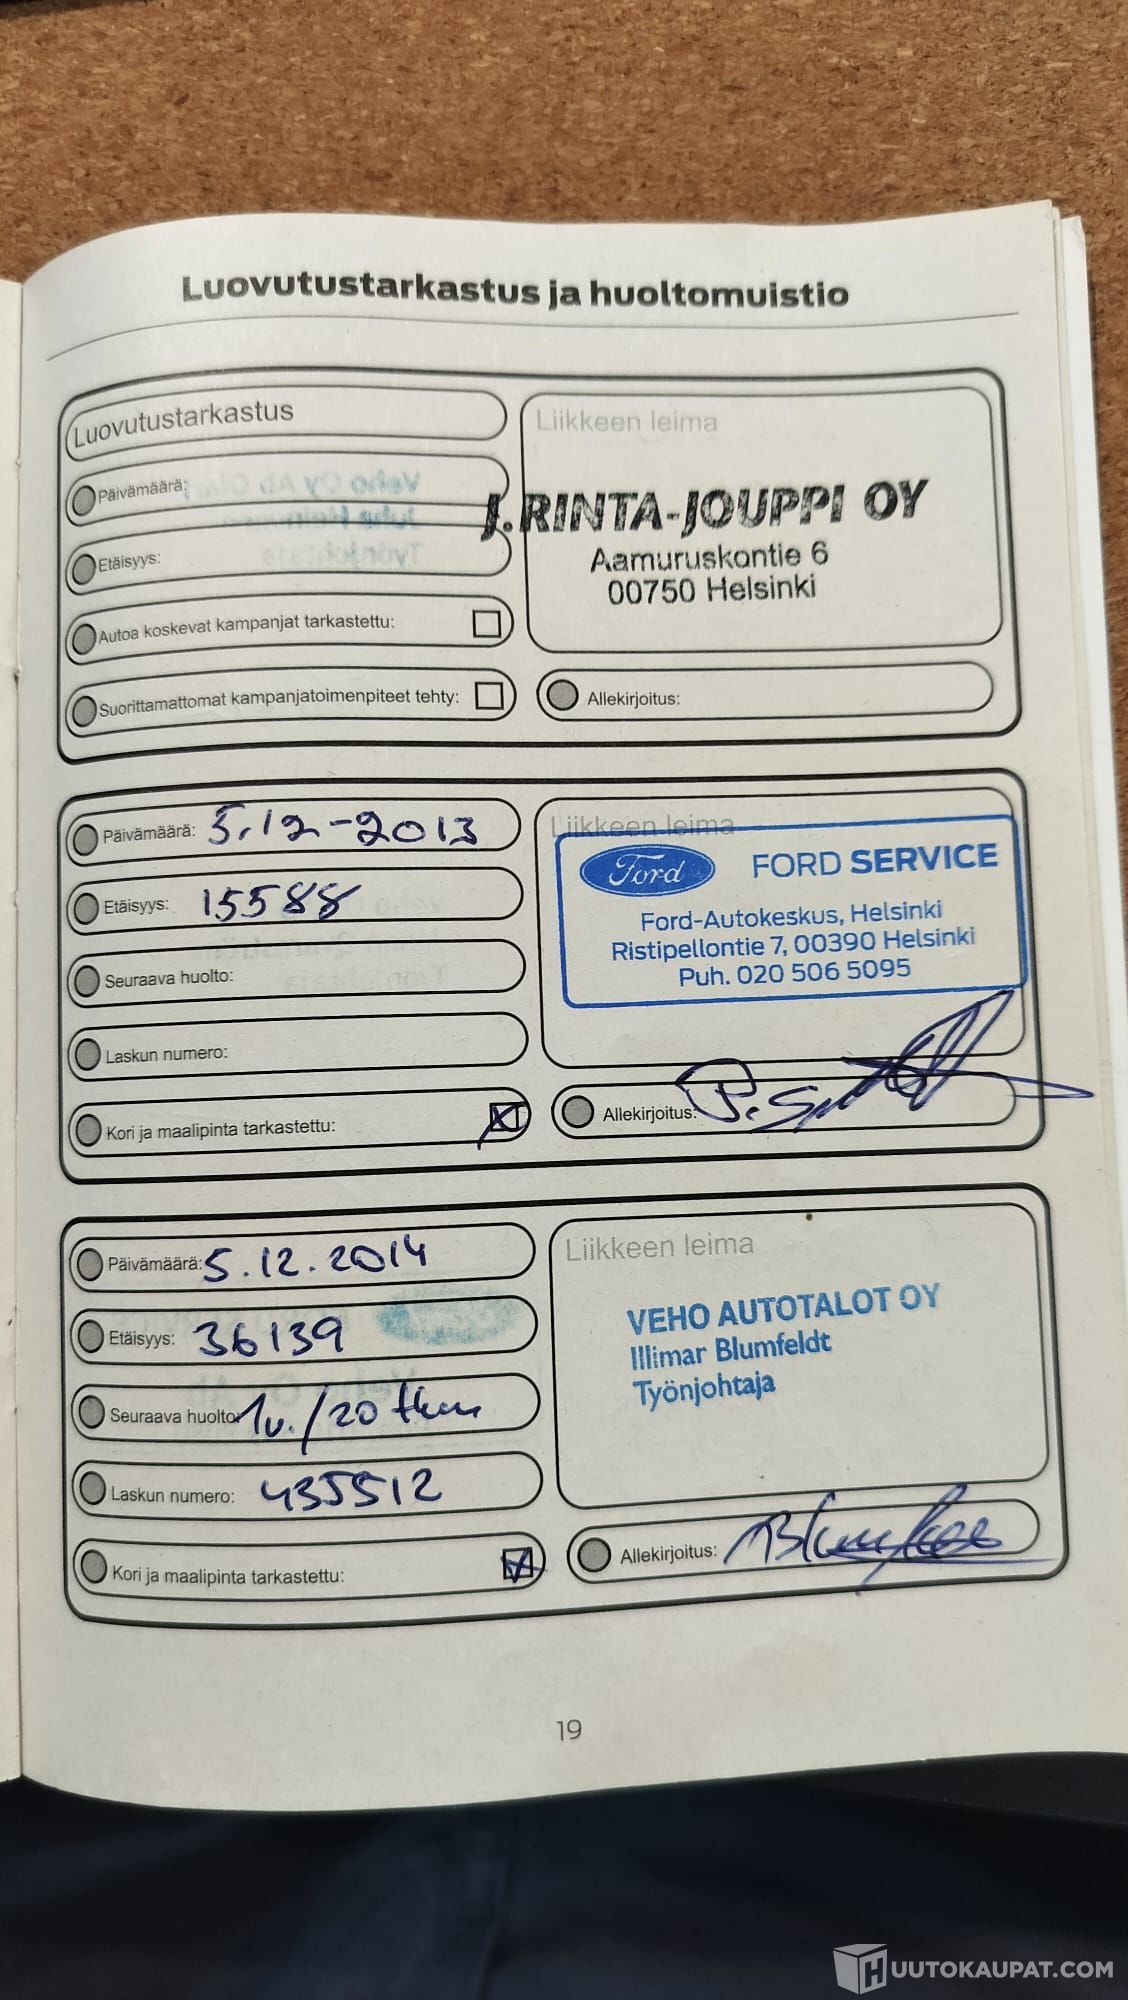 Luovutustarkastus ja huoltomuistio
Luovutustarkastus
Päivämäärä:
Etäisyys:
Autoa koskevat kampanjat tarkastettu:
Suorittamattomat kampanjatoimenpiteet tehty:
Liikkeen leima
J.RINTA-JOUPPI OY
Aamuruskontie 6
00750 Helsinki
Allekirjoitus:
Päivämäärä: 5.12-2013
Etäisyys: 15588
Seuraava huolto:
Laskun numero:
Kori ja maalipinta tarkastettu:
Liikkeen leima
Ford FORD SERVICE
Ford-Autokeskus, Helsinki
Ristipellontie 7, 00390 Helsinki
Puh. 020 506 5095
Allekirjoitus:
Päivämäärä: 5.12.2014
Etäisyys: 36139
Seuraava huolto: 1v./20 tkm
Laskun numero: 435512
Kori ja maalipinta tarkastettu:
Liikkeen leima
VEHO AUTOTALOT OY
Illimar Blumfeldt
Työnjohtaja
Allekirjoitus:
19
HUUTOKAUPAT.COM